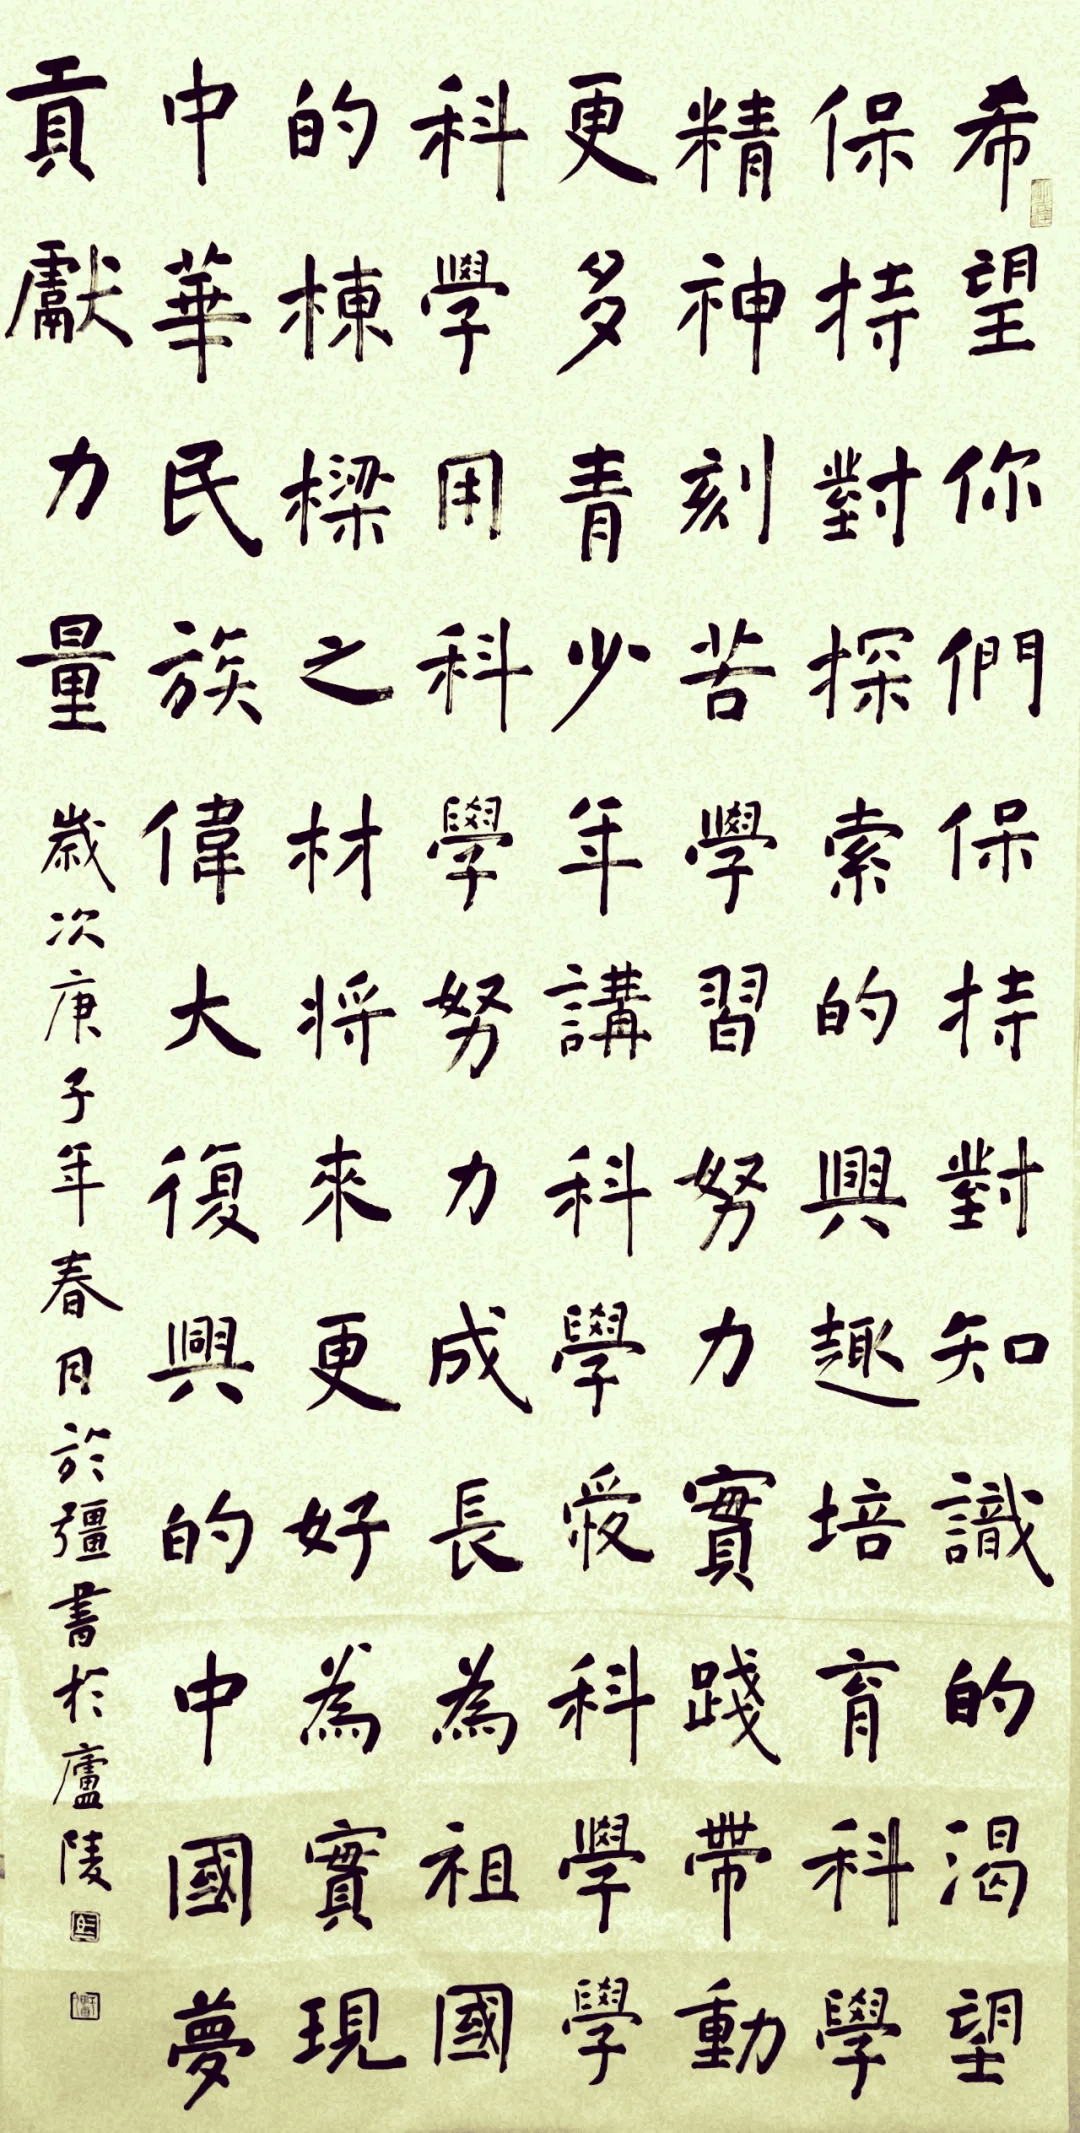 希望你們保持對知識的渴望
保持對探索的興趣培育科學
精神刻苦學習努力實踐帶動
更多青少年講科學愛科學學
科學用科學努力成長為祖國
的棟樑之材將來更好為實現
中華民族偉大復興的中國夢
貢獻力量歲次庚子年春月於疆書於廬陵